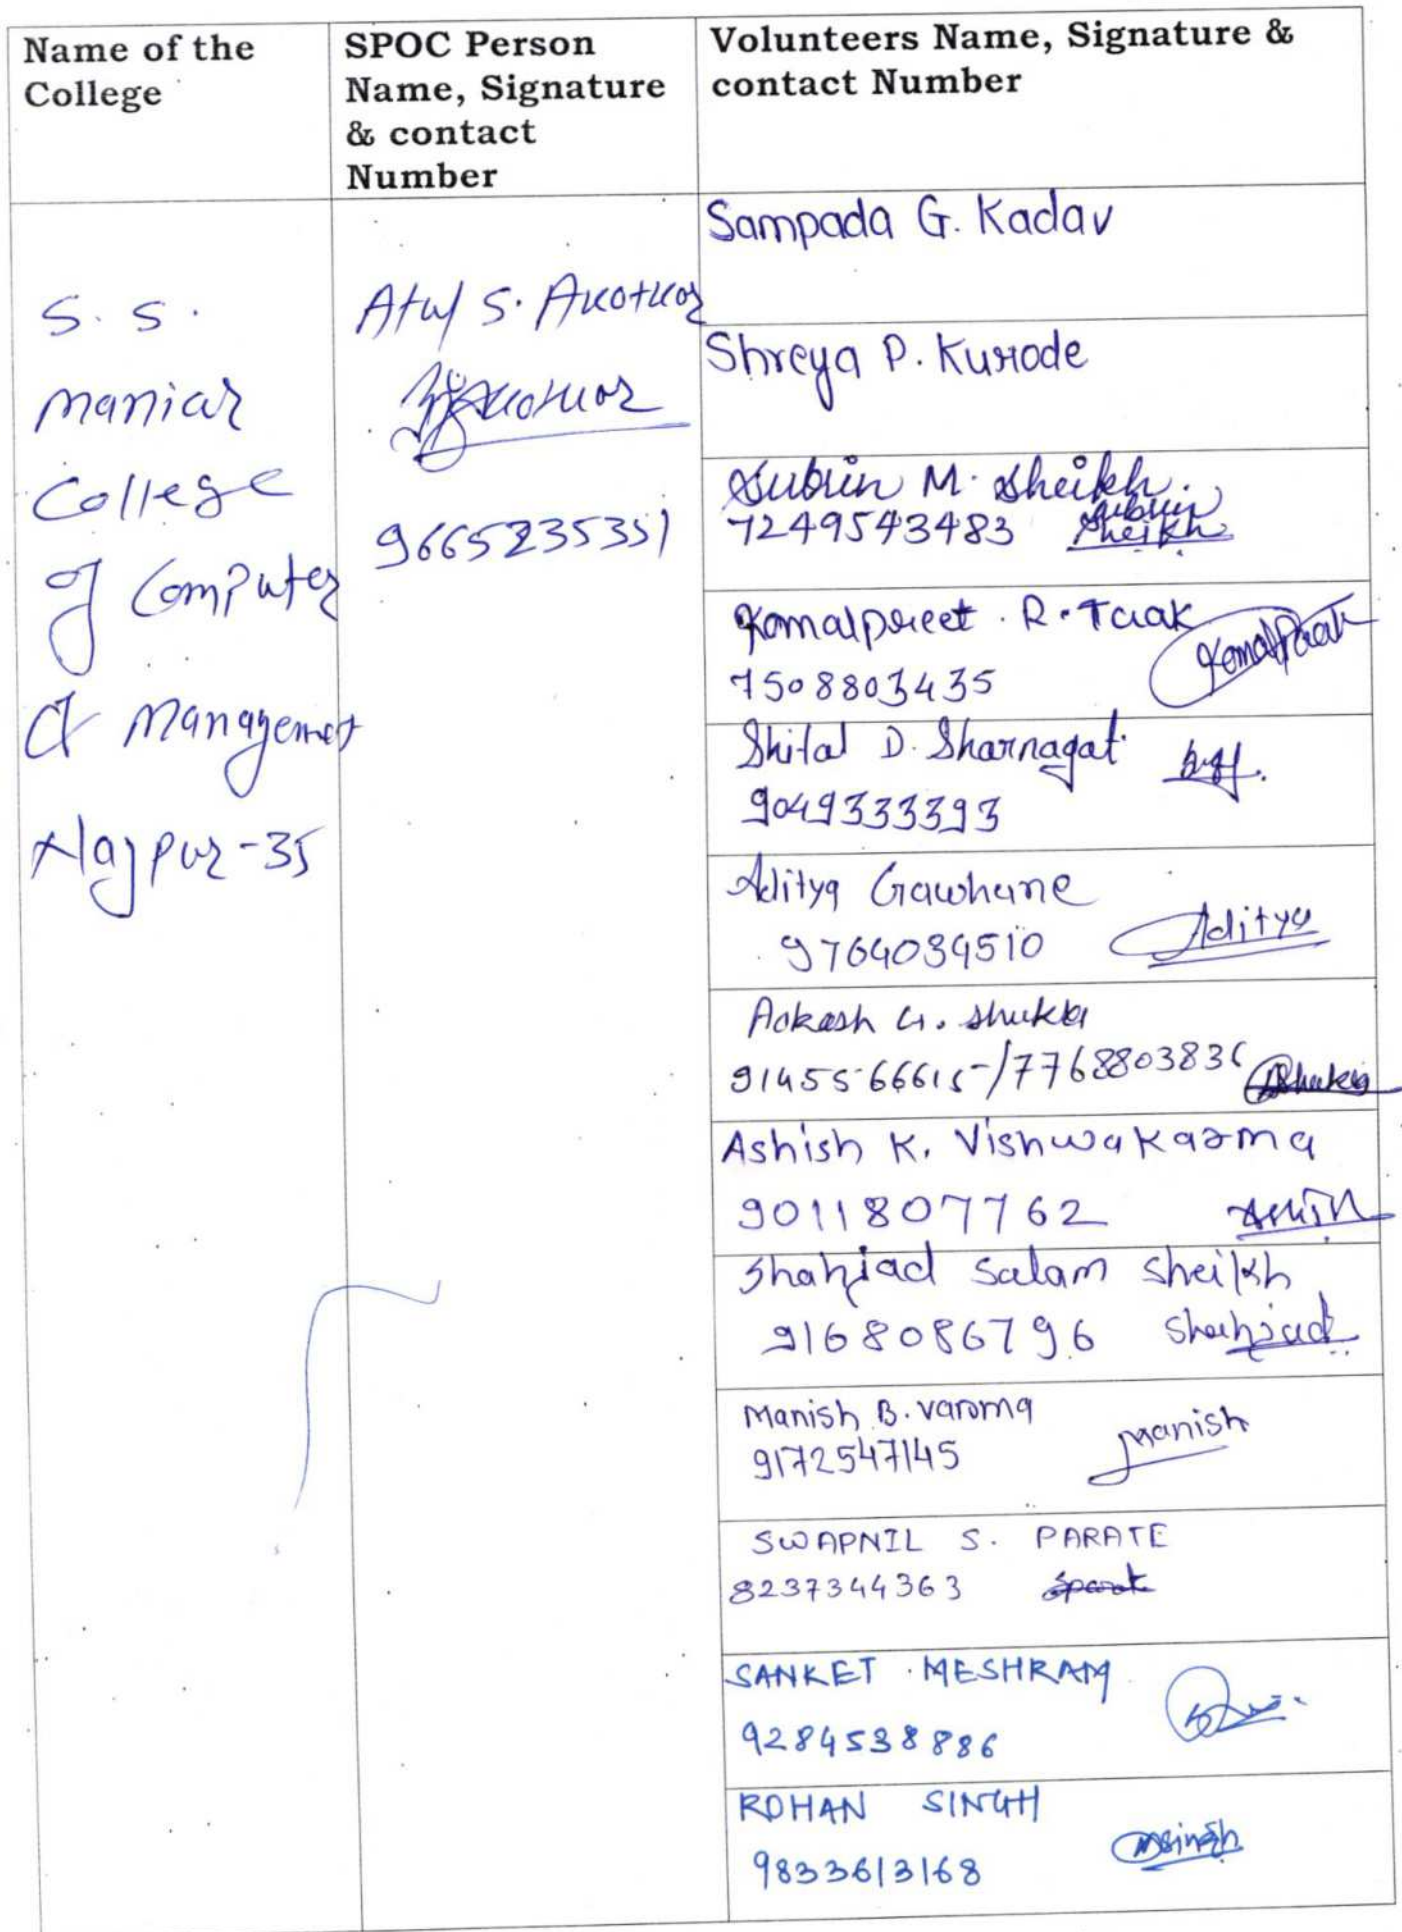 Name of the
College
SPOC Person
Name, Signature
& contact
Number
Volunteers Name, Signature &
contact Number
S. S.
Maniar
College
of Computer
& Managemet
Nagpur-35
Atul S. Akotkar
Akotkar
9665235351
Sampada G. Kadav
Shreya P. Kurode
Subrin M. Sheikh.
7249543483 Subrin
Sheikh
Komalpreet . R. Taak
7508803435
Shital D. Sharnagat
9049333393
Aditya Gawhane
9764039510 Aditya
Aakash G. Shukla
91455 66615-/7768803836 Shukla
Ashish K. Vishwakarma
9011807762 Ashish
Shahjad Salam Sheikh
9168086796 Shahjad
Manish B. Varma
9172547145 Manish
SWAPNIL S. PARATE
8237344363 Sparate
SANKET MESHRAM
9284538886
ROHAN SINGH
9833613168 Rsingh